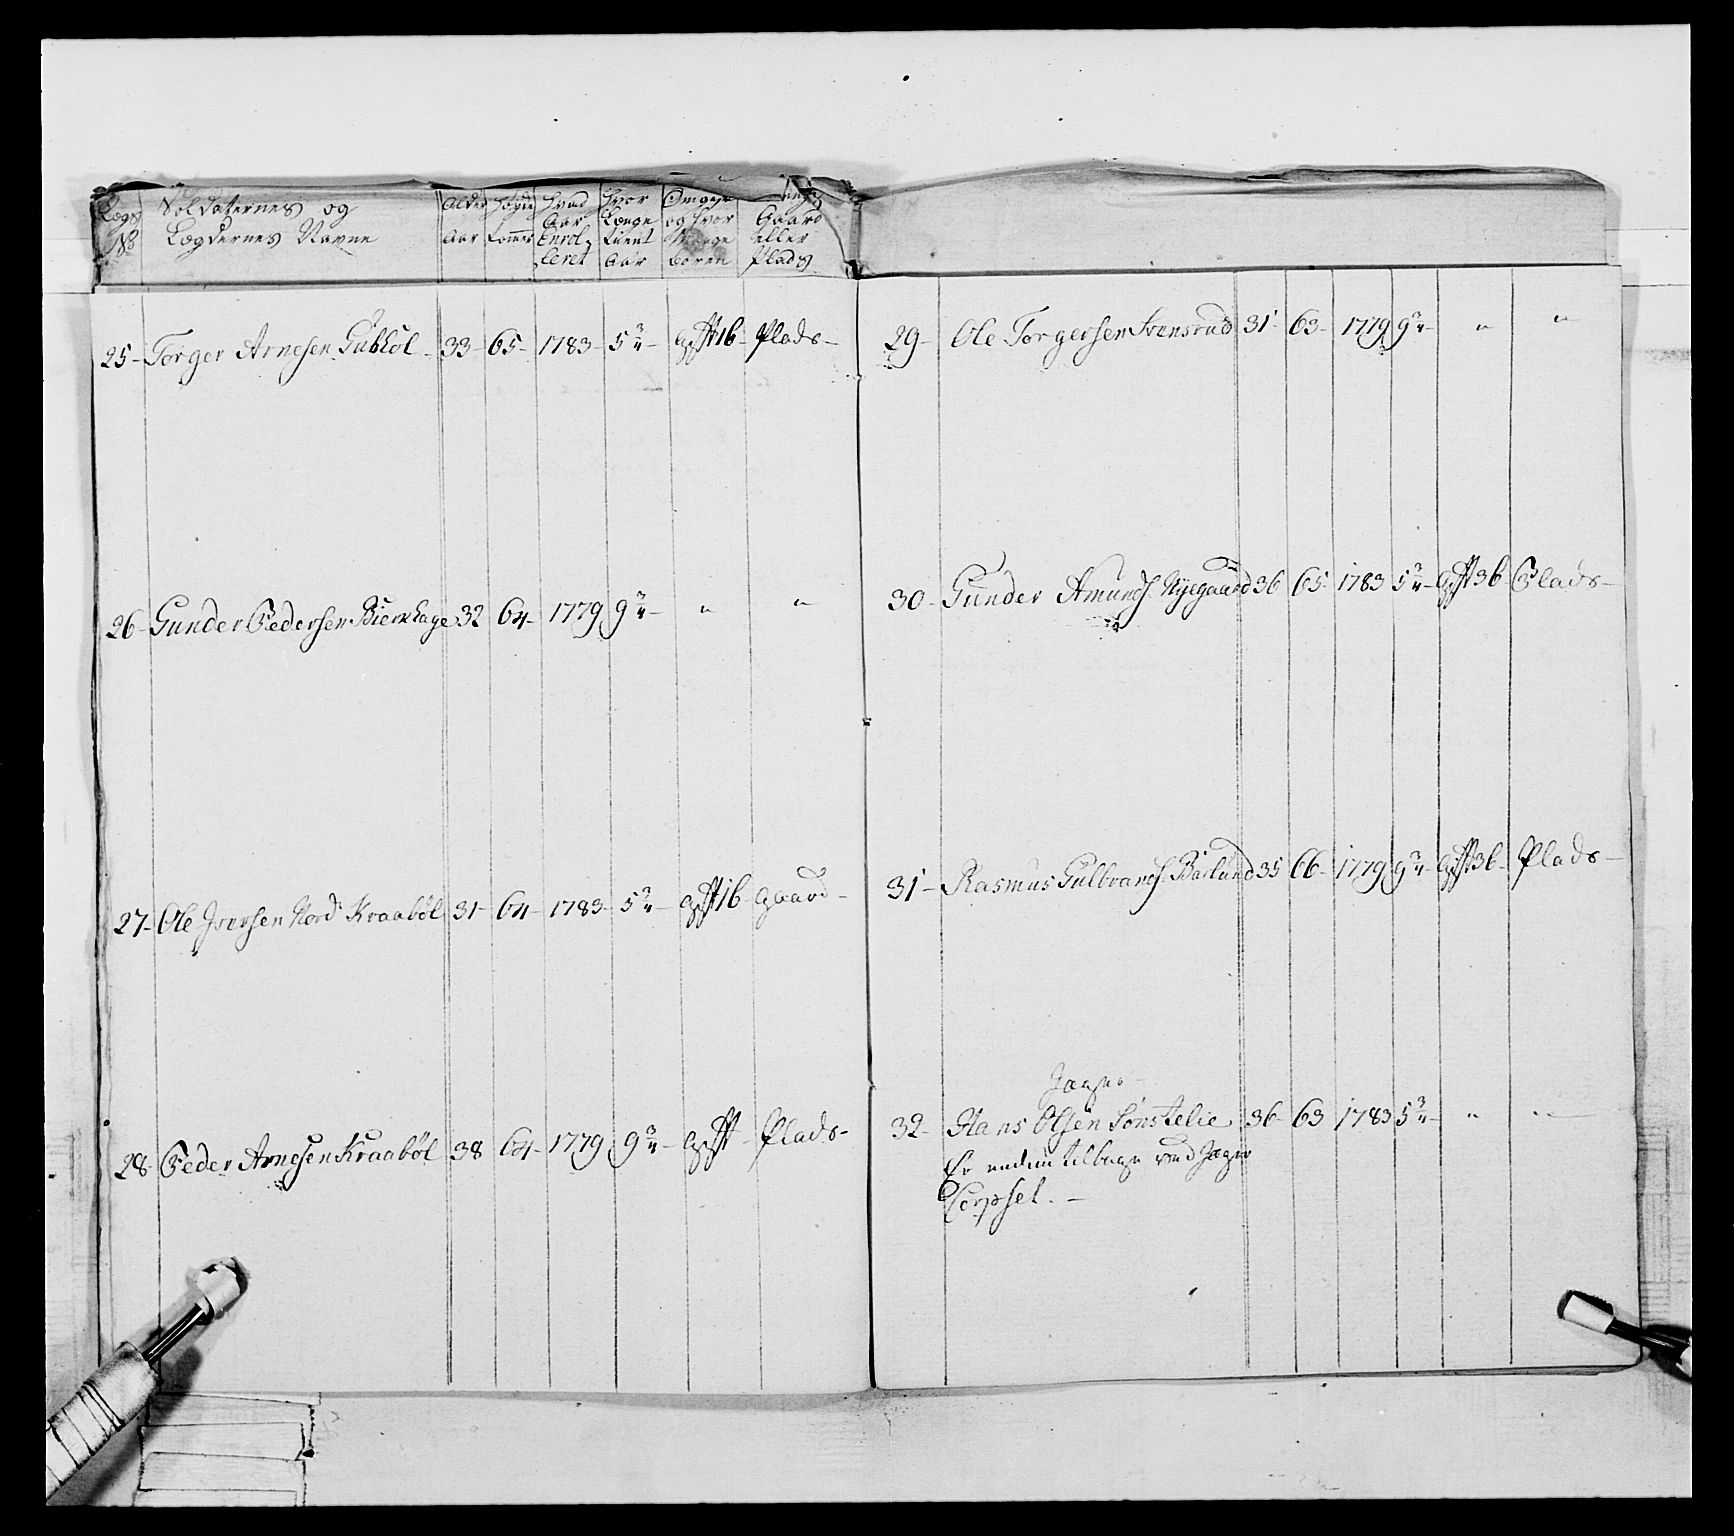 Lægs No | Soldaternes og Lægdernes Navne | Alder Aar | Høyde Tommer | Hvad Aar Enrol- leret | Hvor Længe tient Aar | og Hvor Mange Børen | Gaard eller Plads
25- Torger Arnesen Gubhol - 33- 65- 1783- 5 3/4- gift 1b Plads-
26- Gunder Pedersen Bierkhage 32 64- 1779 9 3/4- " "
27- Ole Iversen Nord Kraabøl 31- 64- 1783- 5 3/4- gift 1b gaard-
28- Peder Arnesen Kraabøl 38 64- 1779 9 3/4- gift- Plads-
29- Ole Torgersen Svensrud 31- 63- 1779 9 3/4- " "
30- Gunder Amunds. Nyegaard 36 65- 1783 5 3/4- gift 3b Plads-
31- Rasmus Gulbrands. Baålund 35 66- 1779 9 3/4- gift 3b- Plads-
Jager
32- Hans Olsen Sønstelie 36- 63 1783 5 3/4- " "
Er endnu tilbage ved Jager
Corpset. -